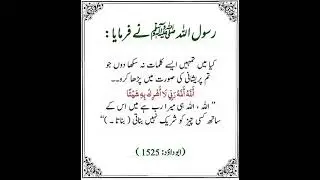 رسول اللہ ﷺ نے فرمایا :
کیا میں تمہیں ایسے کلمات نہ سکھا دوں جو
تم پریشانی کی صورت میں پڑھا کرو۔۔
اَللّٰهُ اَللّٰهُ رَبِّیْ لَا اُشْرِكُ بِهٖ شَیْئًا
" اللہ ، اللہ ہی میرا رب ہے میں اس کے
ساتھ کسی چیز کو شریک نہیں بناتی ( بناتا ۔ ) "
(ابوداؤد: 1525)